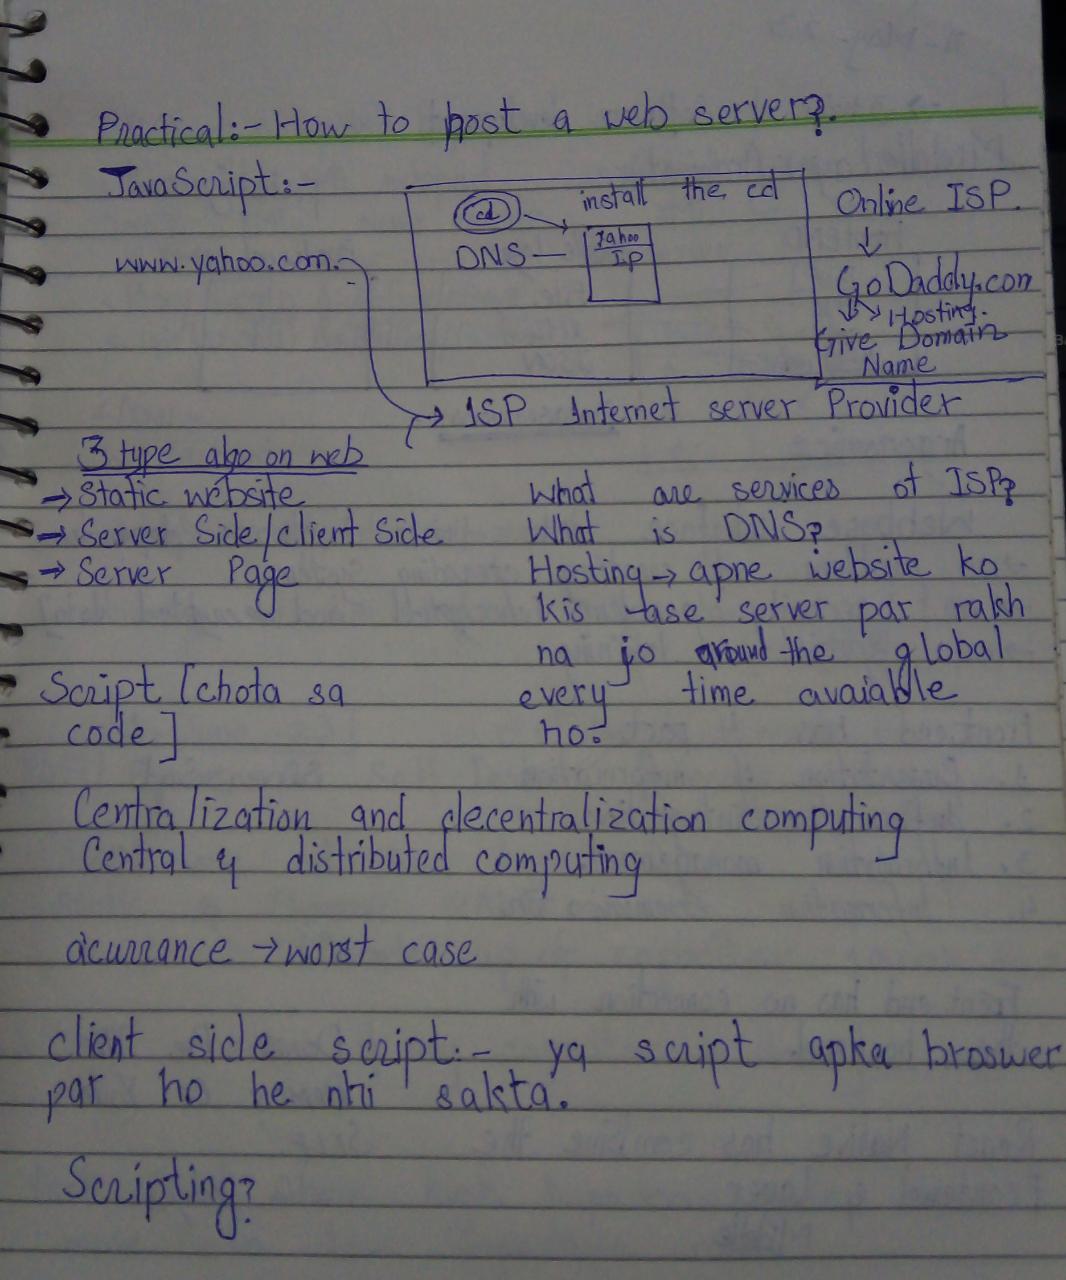 Practical:- How to host a web server?
JavaScript:-
www.yahoo.com.
cd
install the cd
DNS —
Yahoo
IP
Online ISP.
GoDaddy.com
Hosting.
Give Domain
Name
→ ISP Internet server Provider
3 type algo on web
→ Static website
→ Server Side/client Side
→ Server Page
What are services of ISP?
What is DNS?
Hosting → apne website ko
kis tase server par rakh
na jo around the global
every time avaiable
ho.
Script [chota sa
code]
Centralization and decentralization computing
Central & distributed computing
acurrance → worst case
client side script:- ya script apka broswer
par ho he nhi sakta.
Scripting?